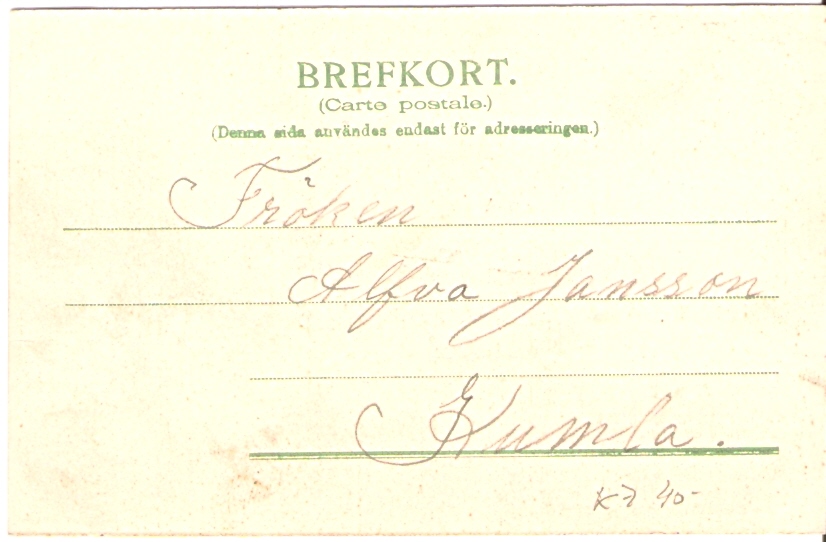 BREFKORT.
(Carte postale.)
(Denna sida användes endast för adresseringen.)
Fröken
Alfva Jansson
Kumla.
40-